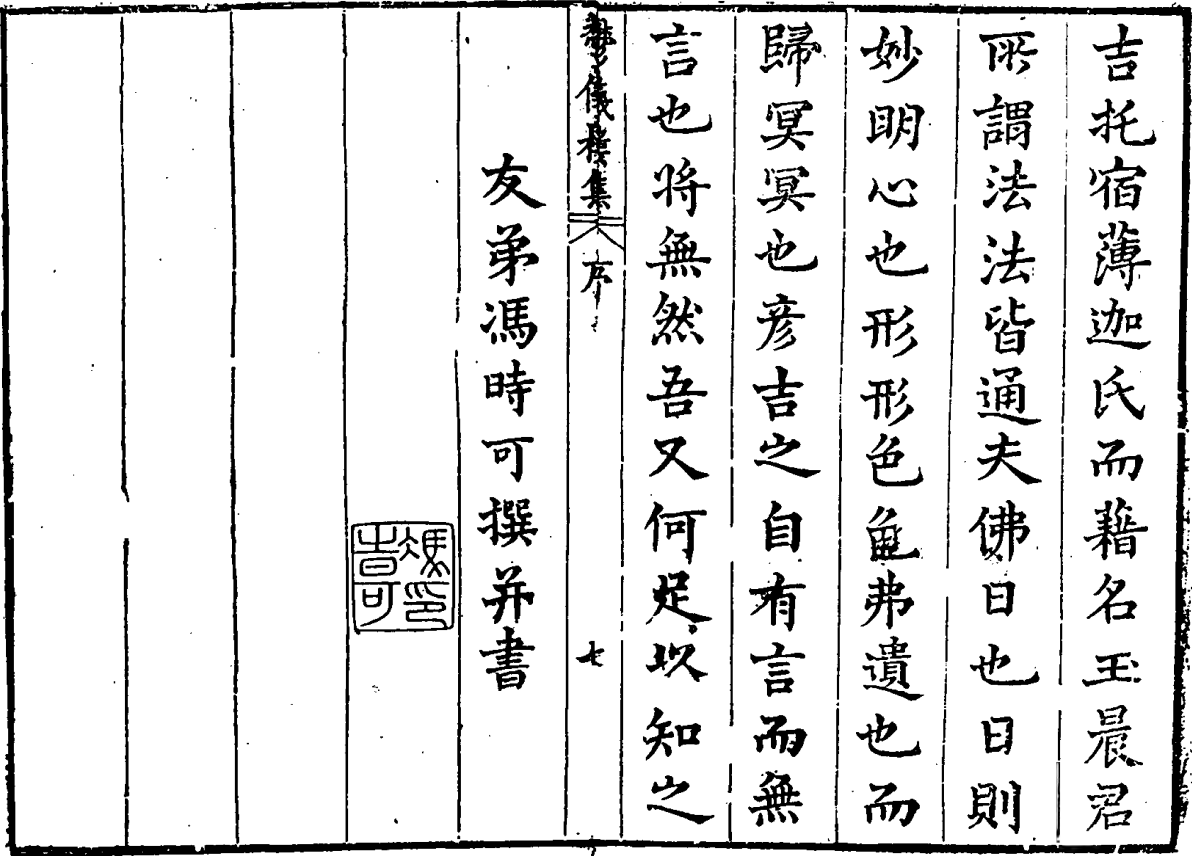 吉托宿薄迦氏而藉名玉晨君
所謂法法皆通夫佛日也日則
妙明心也形形色色弗遺也而
歸冥冥也彥吉之自有言而無
言也將無然吾又何足以知之
鬱儀樓集 序 七
友弟馮時可撰并書
馮印時可